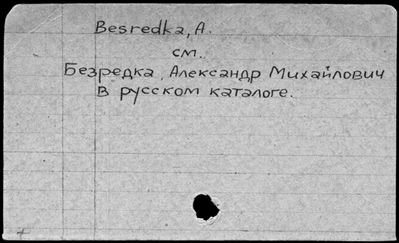 Besredka, A.
см.
Безредка, Александр Михайлович
в русском каталоге.